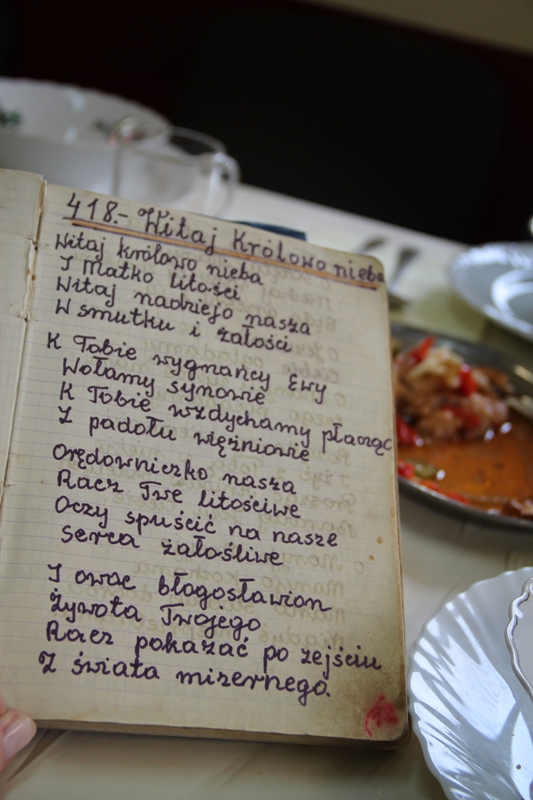 418.- Witaj Królowo nieba
Witaj królowo nieba
I Matko litości
Witaj nadziejo nasza
W smutku i żałości
K Tobie wygnańcy Ewy
Wołamy synowie
K Tobie wzdychamy płacząc
Z padołu więźniowie
Orędowniczko nasza
Racz Twe litościwe
Oczy spuścić na nasze
Serca żałośliwe
I owoc błogosławion
Żywota Twojego
Racz pokazać po zejściu
Z świata mizernego.